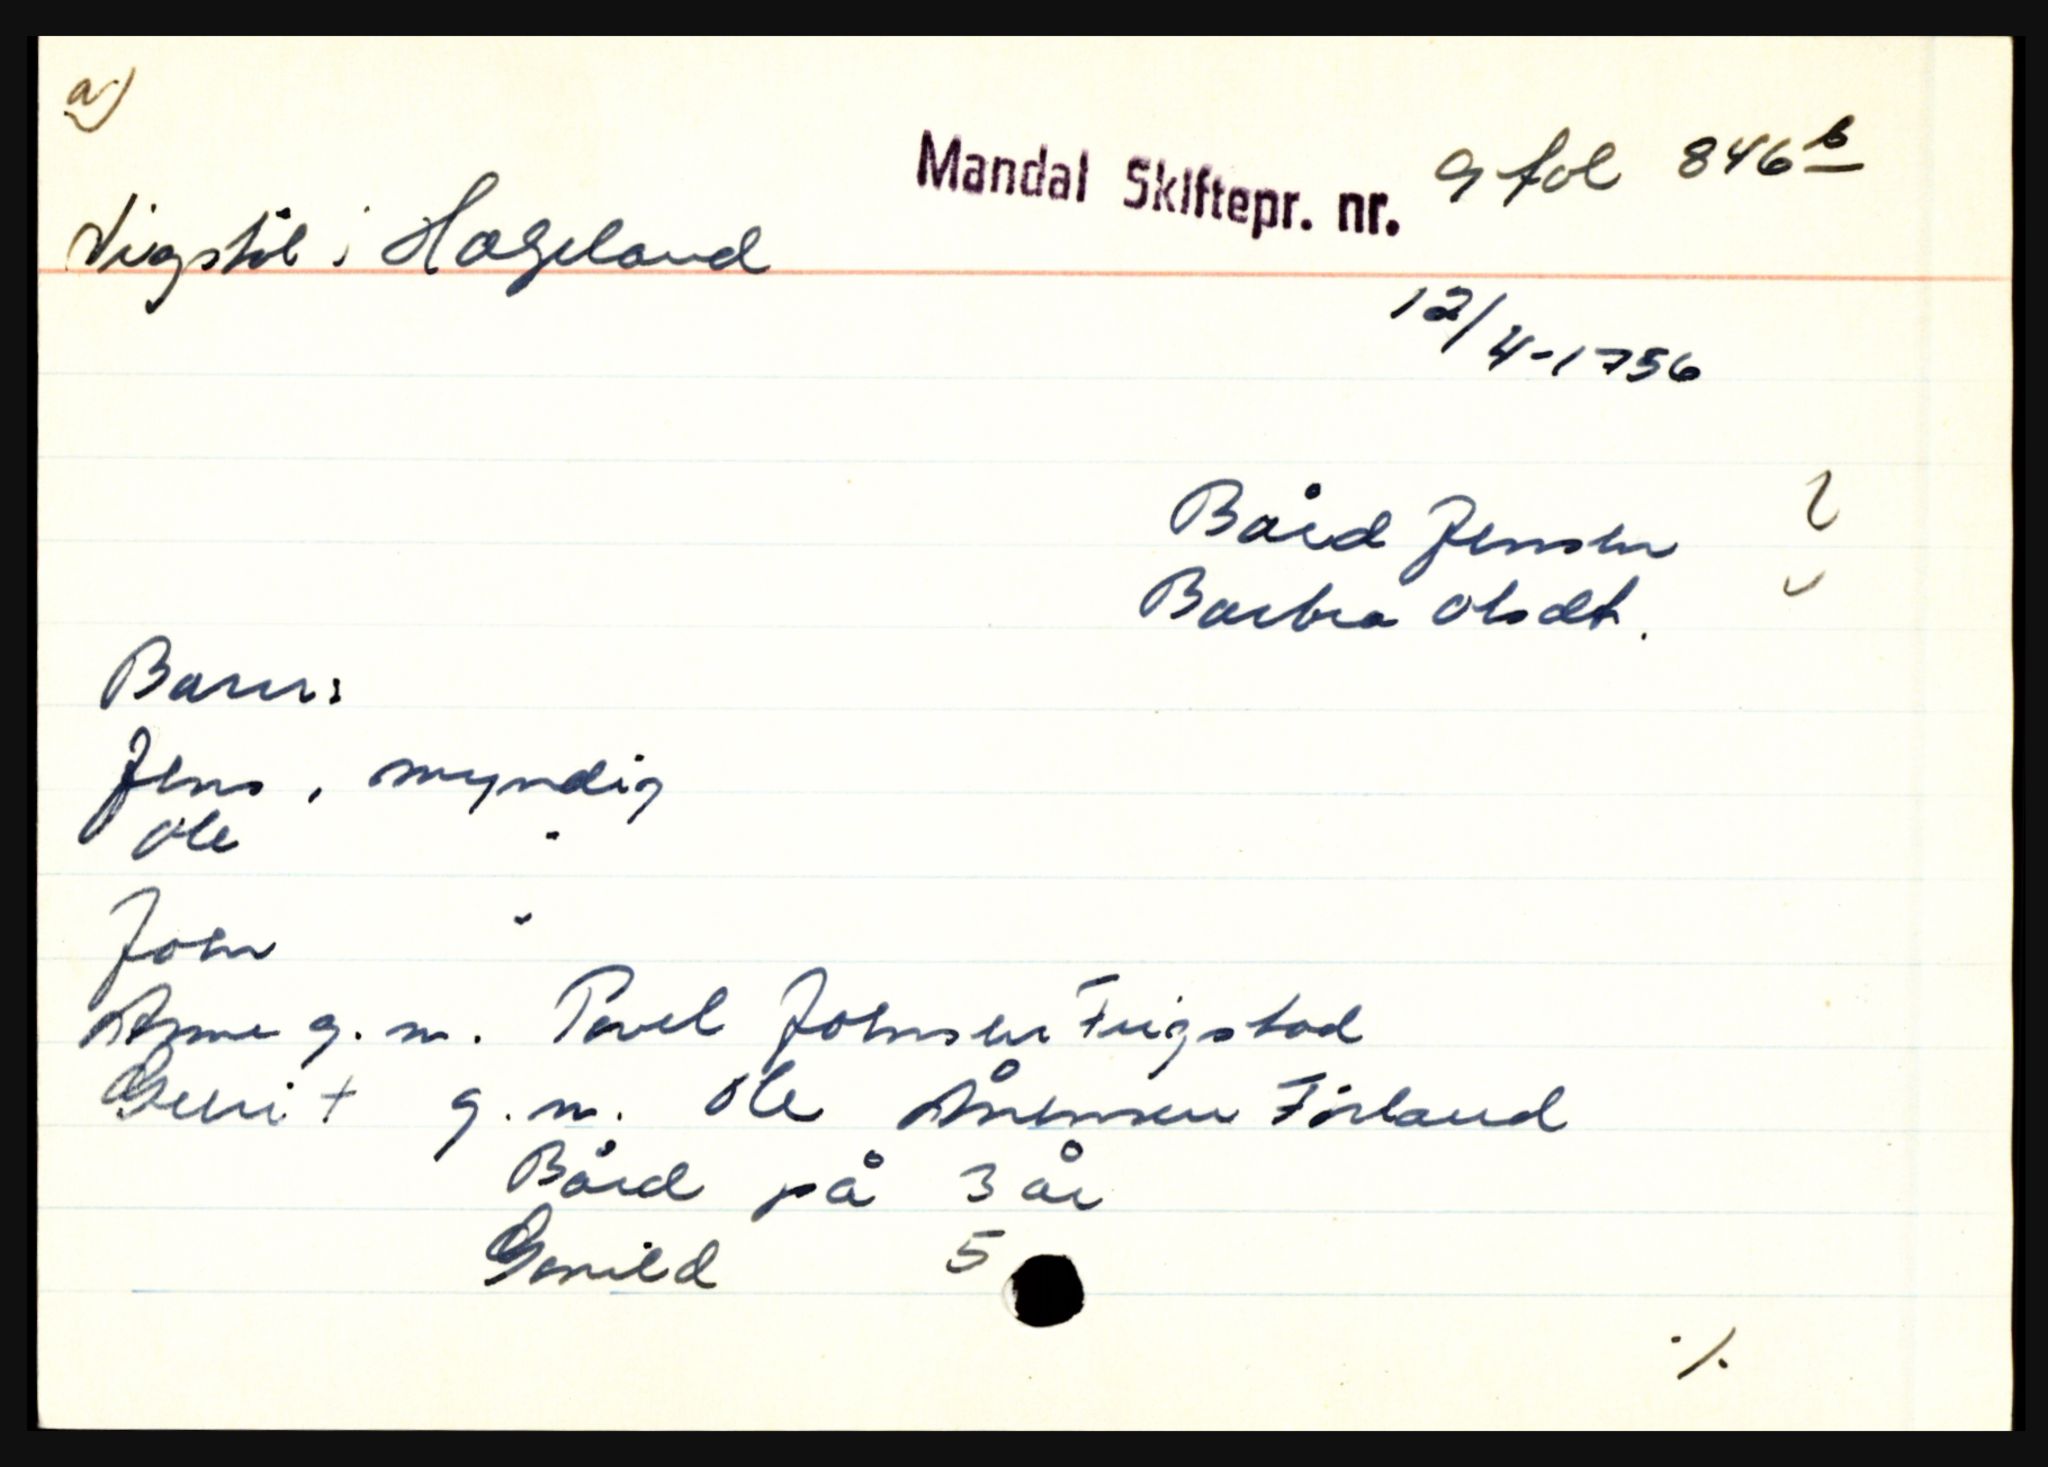 a)
Mandal Skiftepr. nr. 9 fol 846 b
Vigstøl i Hægeland
12/4-1756
Bård Jensen
Barbra Olsdt.
Barn:
Jens, myndig
Ole "
John "
Anne g. m. Povel Johnsen Frigstad
Guri + g. m. Ole Ånensen Førland
Bård på 3 år
Gonild 5
./.